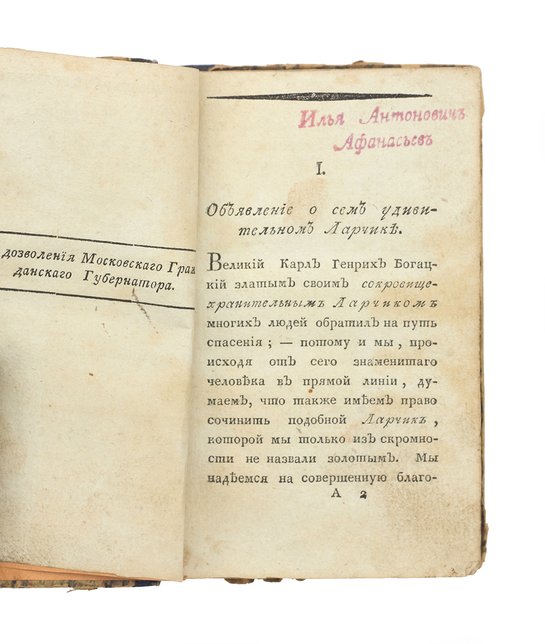 дозволенія Московскаго Граж
данскаго Губернатора.
Илья Антоновичъ
Афанасьевъ
I.
Объявленіе о семъ удиви-
тельномъ Ларчикѣ.
Великій Карлъ Генрихъ Богац-
кій златымъ своимъ сокровище-
хранительнымъ Ларчикомъ
многихъ людей обратилъ на путь
спасенія; — потому и мы, про-
исходя отъ сего знаменитаго
человѣка въ прямой линіи, ду-
маемъ, что также имѣемъ право
сочинить подобной Ларчикъ,
которой мы только изъ скромно-
сти не назвали золотымъ. Мы
надѣемся на совершенную благо-
А 2